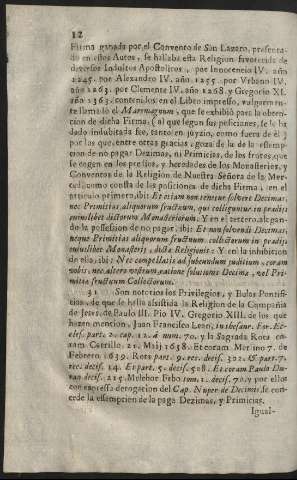 12
Firma ganada por el Convento de San Lazaro, presenta-
do en estos Autos, se hallaba esta Religion favorecida de
diversos Indultos Apostolicos, por Innocencio IV. año
1245. por Alexandro IV. año 1255. por Urbano IV.
año 1263. por Clemente IV. año 1268. y Gregorio XI.
año 1363. contenidos en el Libro impresso, vulgarmen-
te llamado el Maremagnum, que se exhibió para la obten-
cion de dicha Firma; (al que segun sus posiciones, se le ha
dado indubitada fee, tanto en juyzio, como fuera de èl)
por las que, entre otras gracias, goza de la de la essemp-
cion de no pagar Dezimas, ni Primicias, de los frutos, que
se cogen en los pressos, y heredades de los Monasterios, y
Conventos de la Religion de Nuestra Señora de la Mer-
ced, como consta de las posiciones de dicha Firma, en el
articulo primero, ibi: Et etiam non teneme solvere Decimas,
nec Primitias aliquorum fructuum, qui colliguntur in prædijs
cuiuslibet dictorum Monasteriorum: Y en el tercero, alegan-
do la possession de no pagar, ibi: Et non solvendi Decimas,
neque Primitias aliquorum fructuum, collectorum in prædijs
cuiuslibet Monasterij, dictæ Religionis: Y en la inhibition
de ella, ibi: Nec compellatis ad subeundum juditium, coram
vobis, nec altero vestrum, ratione solutionis Decimæ, vel Pri-
mitiæ fructuum Collectorum.
31 Son notorios los Privilegios, y Bulas Pontifi-
cias, de que se halla assistida la Religion de la Compañia
de Jesvs, de Paulo III. Pio IV. Gregorio XIII. de los que
hazen mencion, Juan Francisco Leon, in thesaur. For. Ec-
cles. part. 2. cap. 12. à num. 70. y la Sagrada Rota co-
ram Cerrillo, 21. Maij 1638. Et coram Merlino 7. de
Febrero 1639. Rota part. 9. rec. decis. 302. & part. 7.
rec. decis. 14. Et part. 5. decis. 508. Et coram Paulo Du-
ran decis. 215. Melchor Febo tom. 1. decis. 70. y por ellos
con expressa derogacion del Cap. Nuper de Decimis, se con-
cede la essempcion de la paga Dezimas, y Primicias.
Igual-